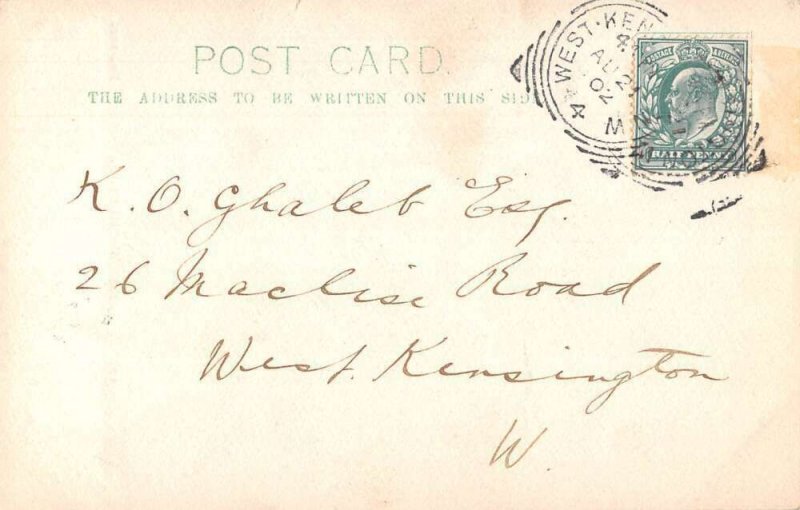 POST CARD.
THE ADDRESS TO BE WRITTEN ON THIS SIDE
WEST·KEN
4
AU
02
W
4
POSTAGE
HALFPENNY
K. O. Ghaleb Esq.
26 Maclise Road
West Kensington
W.